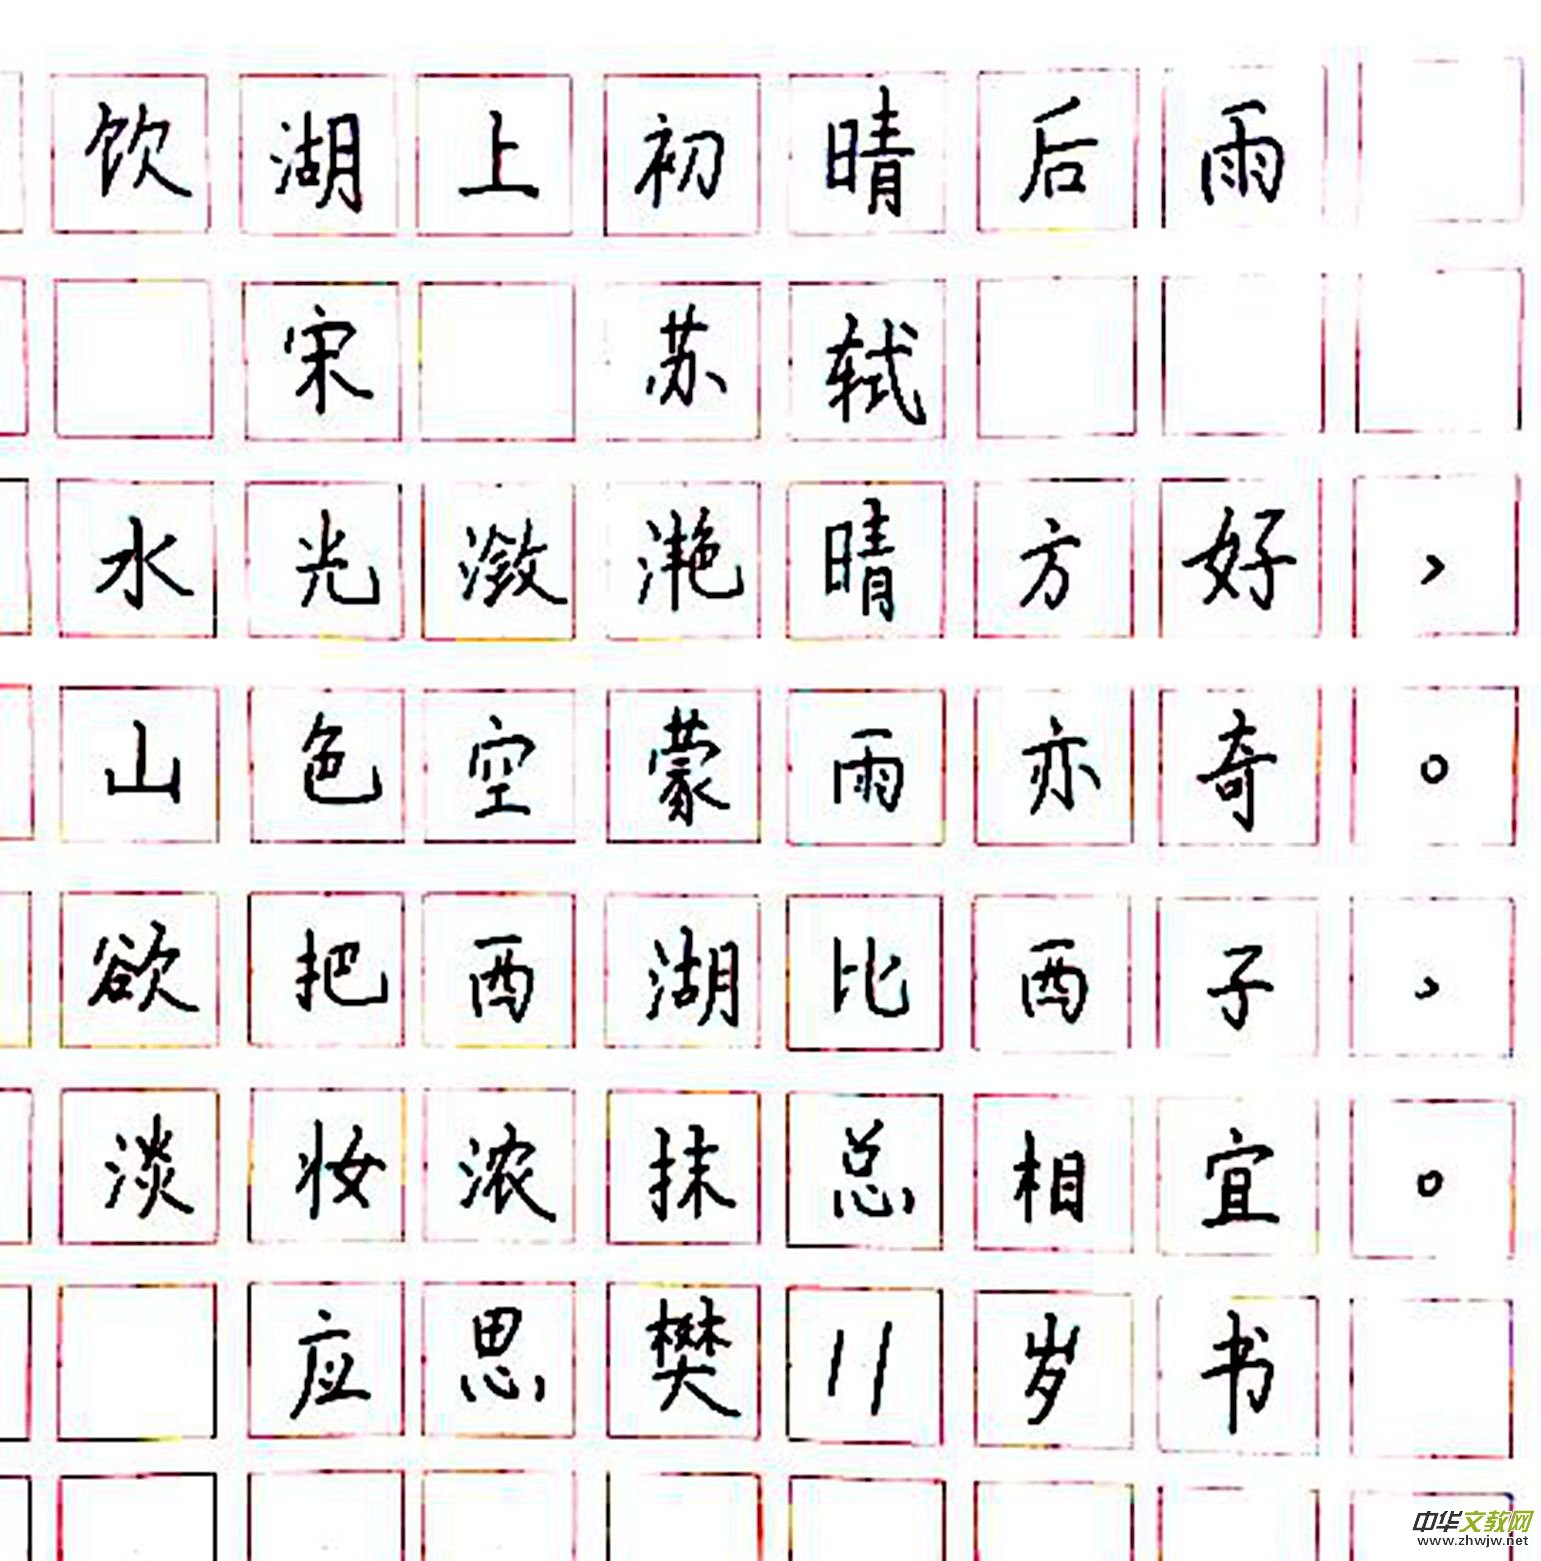 饮湖上初晴后雨
宋 苏轼
水光潋滟晴方好，
山色空蒙雨亦奇。
欲把西湖比西子，
淡妆浓抹总相宜。
应思樊11岁书
中华文教网
www.zhwjw.net